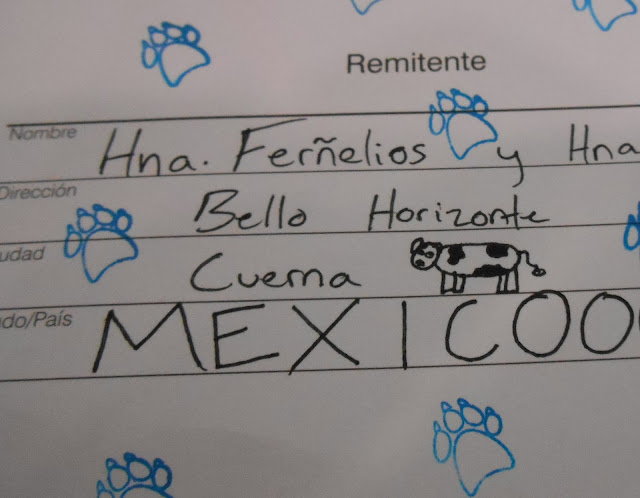 Remitente
Nombre Hna. Ferñelios y Hna
Dirección Bello Horizonte
udad Cuerna
do/País MEXICOO